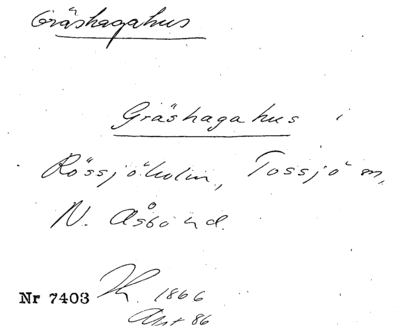 Gräshagahus
Gräshagahus i
Rössjöholm, Tossjö sn,
N. Åsbo hd.
Nr 7403 Hfl. 1866
Abt 86